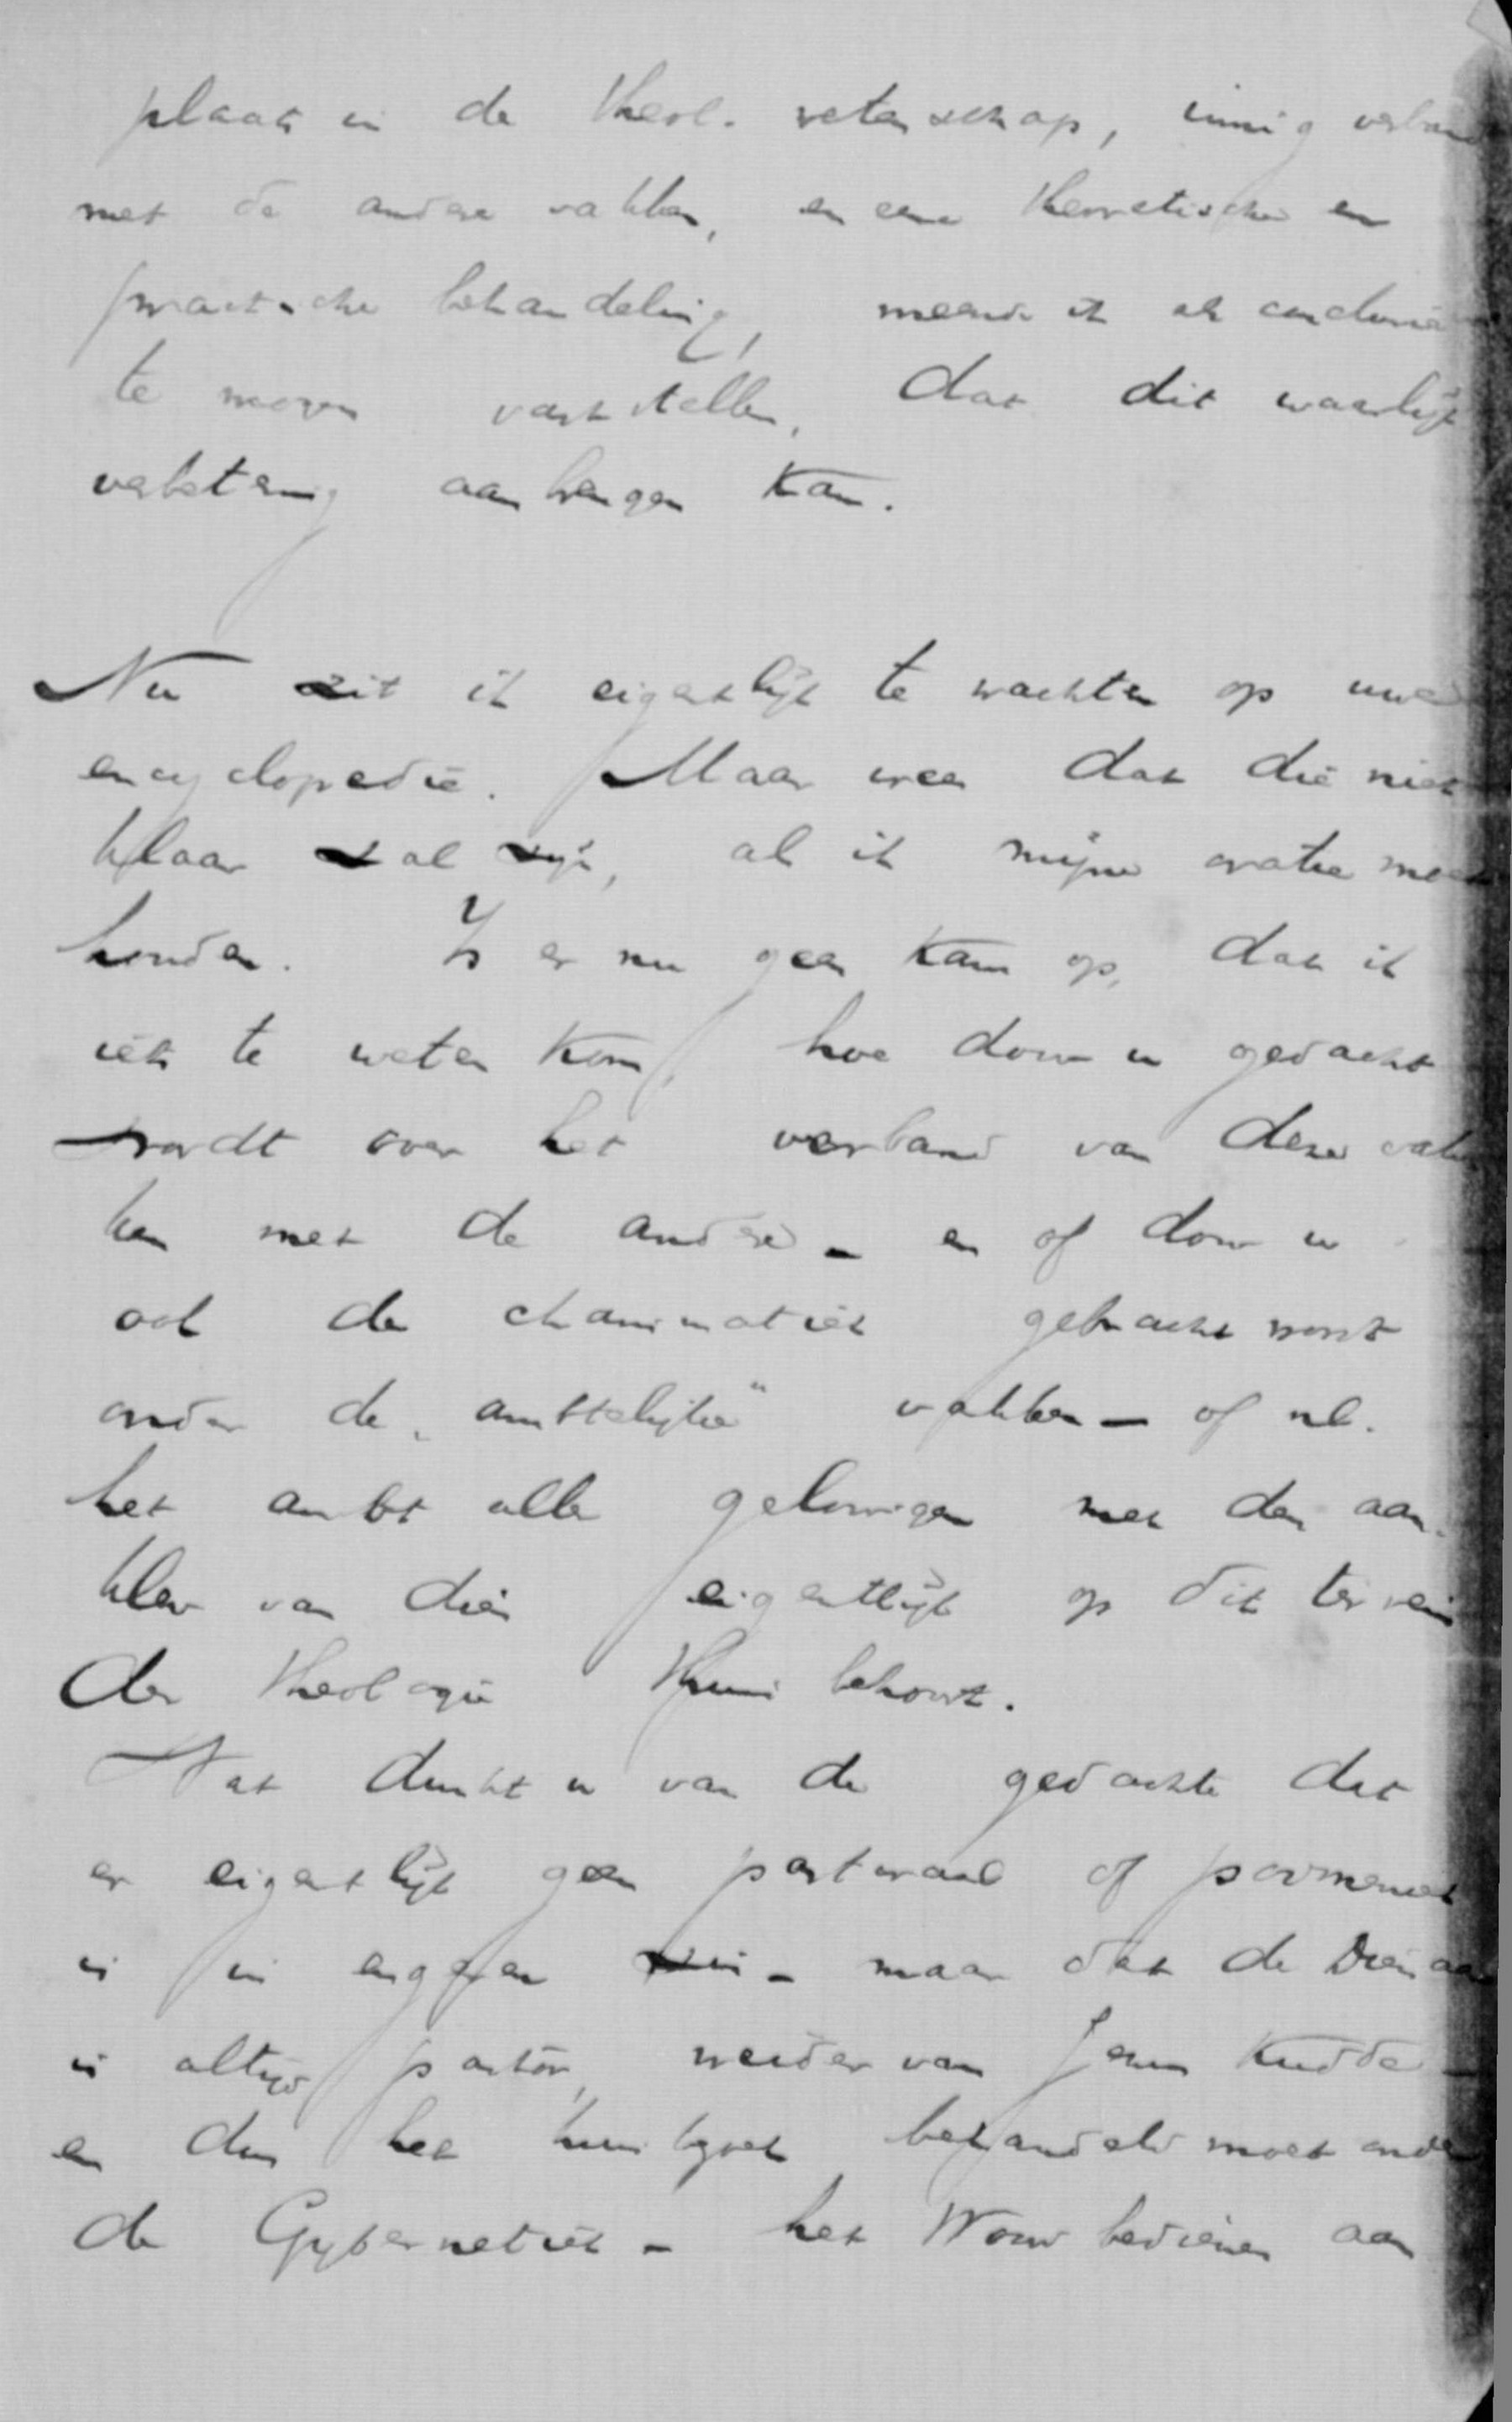 plaats in de theol. wetenschap, innig verband
met de andere vakken, en eene theoretische en
practische behandeling, meende ik als conclusie
te mogen vaststellen, dat dit waarlijk
verbetering aanbrengen kan.
Nu zit ik eigenlijk te wachten op uwe
encyclopedie. Maar vrees dat die niet
klaar zal zijn, als ik mijne oratie moet
houden. Is er nu geen kans op, dat ik
iets te weten kom, hoe door u gedacht
wordt over het verband van deze vak
ken met de andere - en of door u
ook de charismatiek gebracht wordt
onder de „ambtelijke" vakken - of nl.
het ambt aller geloovigen met den aan-
kleve van dien eigentlijk op dit terrein
der theologie thuis behoort.
Wat dunkt u van de gedachte dat
er eigenlijk geen pastoraal of poimeniek
is in engeren zin - maar dat de Dienaar
is altijd pastor, weider van Jezus kudde -
en dus het huisbezoek behandeld moet onder
de Gybernetiek - het Woord bedienen aan